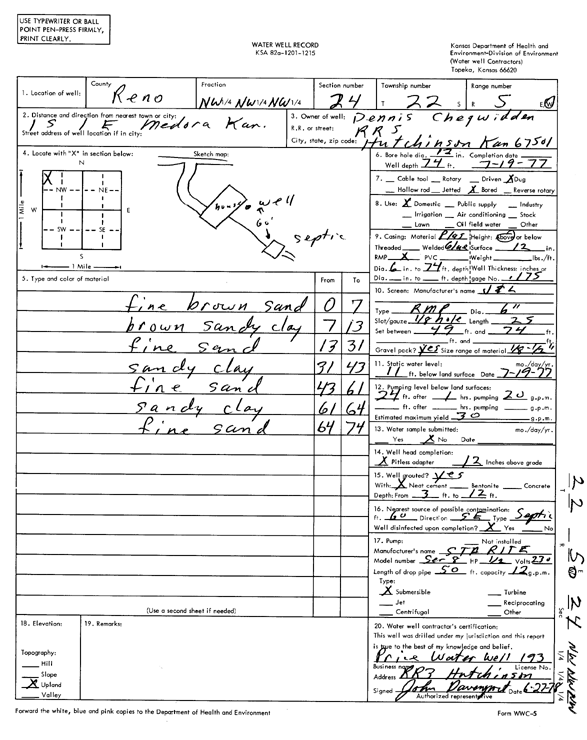 USE TYPEWRITER OR BALL
POINT PEN-PRESS FIRMLY,
PRINT CLEARLY.
WATER WELL RECORD
KSA 82a-1201-1215
Kansas Department of Health and
Environment-Division of Environment
(Water well Contractors)
Topeka, Kansas 66620
1. Location of well: County Reno Fraction NW 1/4 NW 1/4 NW 1/4 Section number 24 Township number T 22 S Range number R 5 E/W
2. Distance and direction from nearest town or city: 1 S 1 E Medora Kan.
Street address of well location if in city:
3. Owner of well: Dennis Chegwidden
R.R. or street: RR5
City, state, zip code: Hutchinson Kan 67501
4. Locate with "X" in section below:
N
X
NW NE
W E
SW SE
S
1 Mile
1 Mile
Sketch map:
house
well
60'
septic
5. Type and color of material From To
fine brown sand 0 7
brown sandy clay 7 13
fine sand 13 31
sandy clay 31 43
fine sand 43 61
sandy clay 61 64
fine sand 64 74
(Use a second sheet if needed)
6. Bore hole dia. 12 in. Completion date
Well depth 74 ft. 7-19-77
7. Cable tool Rotary Driven X Dug
Hollow rod Jetted X Bored Reverse rotary
8. Use: X Domestic Public supply Industry
Irrigation Air conditioning Stock
Lawn Oil field water Other
9. Casing: Material Plas Height: Above or below
Threaded Welded Glue Surface 12 in.
RMP X PVC Weight lbs./ft.
Dia. 6 in. to 74 ft. depth Wall Thickness: inches or
Dia. in. to ft. depth gage No. .175
10. Screen: Manufacturer's name
Type RMP Dia. 6"
Slot/gauze 1/8 hole Length 25
Set between 49 ft. and 74 ft.
ft. and ft.
Gravel pack? yes Size range of material 1/8-1/2"
11. Static water level: mo./day/yr.
11 ft. below land surface Date 7-19-77
12. Pumping level below land surfaces:
24 ft. after 1 hrs. pumping 20 g.p.m.
ft. after hrs. pumping g.p.m.
Estimated maximum yield 30 g.p.m.
13. Water sample submitted: mo./day/yr.
Yes X No Date
14. Well head completion:
X Pitless adapter 12 Inches above grade
15. Well grouted? yes
With: X Neat cement Bentonite Concrete
Depth: From 3 ft. to 12 ft.
16. Nearest source of possible contamination:
ft. 60 Direction SE Type Septic
Well disinfected upon completion? X Yes No
17. Pump: Not installed
Manufacturer's name STA RITE
Model number Ser 8 HP 1/2 Volts 230
Length of drop pipe 50 ft. capacity 12 g.p.m.
Type:
X Submersible Turbine
Jet Reciprocating
Centrifugal Other
18. Elevation:
Topography:
Hill
Slope
X Upland
Valley
19. Remarks:
20. Water well contractor's certification:
This well was drilled under my jurisdiction and this report
is true to the best of my knowledge and belief.
Price Water Well 193
Business name License No.
Address RR3 Hutchinson
Signed John Davenport Date 6-27-78
Authorized representative
Forward the white, blue and pink copies to the Department of Health and Environment
Form WWC-5
T 22 R 5 E W Sec 24 NW 1/4 NW 1/4 NW 1/4